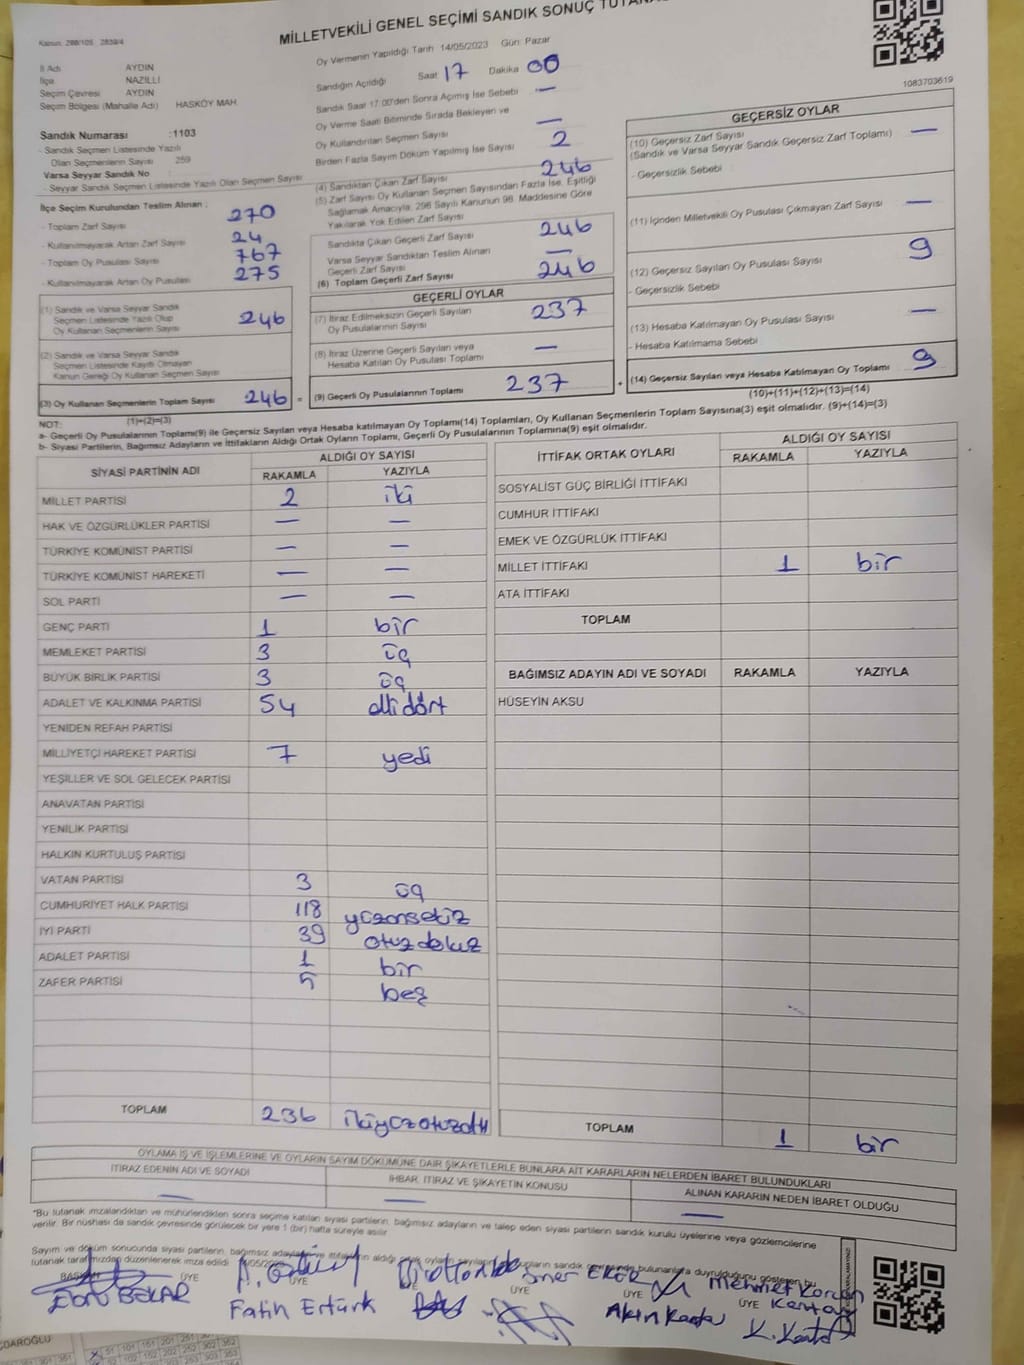 MİLLETVEKİLİ GENEL SEÇİMİ SANDIK SONUÇ
Kanun: 298/105 2839/4
Oy Vermenin Yapıldığı Tarih 14/05/2023 Gün: Pazar
İl Adı AYDIN
İlçe NAZİLLİ
Seçim Çevresi AYDIN
Seçim Bölgesi (Mahalle Adı) HASKÖY MAH
Sandık Numarası :1103
- Sandık Seçmen Listesinde Yazılı
Olan Seçmenlerin Sayısı 259
Varsa Seyyar Sandık No
- Seyyar Sandık Seçmen Listesinde Yazılı Olan Seçmen Sayısı
Sandığın Açıldığı Saat 17 Dakika 00
Sandık Saat 17:00'den Sonra Açılmış İse Sebebi —
Oy Verme Saati Bitiminde Sırada Bekleyen ve
Oy Kullandırılan Seçmen Sayısı —
Birden Fazla Sayım Döküm Yapılmış İse Sayısı 2
1083703619
İlçe Seçim Kurulundan Teslim Alınan ;
- Toplam Zarf Sayısı 270
- Kullanılmayarak Artan Zarf Sayısı 24
- Toplam Oy Pusulası Sayısı 767
- Kullanılmayarak Artan Oy Pusulası 275
(1) Sandık ve Varsa Seyyar Sandık
Seçmen Listesinde Yazılı Olup
Oy Kullanan Seçmenlerin Sayısı 246
(2) Sandık ve Varsa Seyyar Sandık
Seçmen Listesinde Kayıtlı Olmayan
Kanun Gereği Oy Kullanan Seçmen Sayısı
(3) Oy Kullanan Seçmenlerin Toplam Sayısı 246 =
(1)+(2)=(3)
(4) Sandıktan Çıkan Zarf Sayısı 246
(5) Zarf Sayısı Oy Kullanan Seçmen Sayısından Fazla İse, Eşitliği
Sağlamak Amacıyla, 298 Sayılı Kanunun 98. Maddesine Göre
Yakılarak Yok Edilen Zarf Sayısı
Sandıkta Çıkan Geçerli Zarf Sayısı 246
Varsa Seyyar Sandıktan Teslim Alınan
Geçerli Zarf Sayısı —
(6) Toplam Geçerli Zarf Sayısı 246
GEÇERLİ OYLAR
(7) İtiraz Edilmeksizin Geçerli Sayılan
Oy Pusulalarının Sayısı 237
(8) İtiraz Üzerine Geçerli Sayılan veya
Hesaba Katılan Oy Pusulası Toplamı —
(9) Geçerli Oy Pusulalarının Toplamı 237 +
GEÇERSİZ OYLAR
(10) Geçersiz Zarf Sayısı —
(Sandık ve Varsa Seyyar Sandık Geçersiz Zarf Toplamı)
- Geçersizlik Sebebi
(11) İçinden Milletvekili Oy Pusulası Çıkmayan Zarf Sayısı —
(12) Geçersiz Sayılan Oy Pusulası Sayısı 9
- Geçersizlik Sebebi
(13) Hesaba Katılmayan Oy Pusulası Sayısı —
- Hesaba Katılmama Sebebi
(14) Geçersiz Sayılan veya Hesaba Katılmayan Oy Toplamı 9
(10)+(11)+(12)+(13)=(14)
NOT:
a- Geçerli Oy Pusulalarının Toplamı(9) ile Geçersiz Sayılan veya Hesaba katılmayan Oy Toplamı(14) Toplamları, Oy Kullanan Seçmenlerin Toplam Sayısına(3) eşit olmalıdır. (9)+(14)=(3)
b- Siyasi Partilerin, Bağımsız Adayların ve İttifakların Aldığı Ortak Oyların Toplamı, Geçerli Oy Pusulalarının Toplamına(9) eşit olmalıdır.
SİYASİ PARTİNİN ADI ALDIĞI OY SAYISI
RAKAMLA YAZIYLA
MİLLET PARTİSİ 2 iki
HAK VE ÖZGÜRLÜKLER PARTİSİ — —
TÜRKİYE KOMÜNİST PARTİSİ — —
TÜRKİYE KOMÜNİST HAREKETİ — —
SOL PARTİ — —
GENÇ PARTİ 1 bir
MEMLEKET PARTİSİ 3 üç
BÜYÜK BİRLİK PARTİSİ 3 üç
ADALET VE KALKINMA PARTİSİ 54 ellidört
YENİDEN REFAH PARTİSİ
MİLLİYETÇİ HAREKET PARTİSİ 7 yedi
YEŞİLLER VE SOL GELECEK PARTİSİ
ANAVATAN PARTİSİ
YENİLİK PARTİSİ
HALKIN KURTULUŞ PARTİSİ
VATAN PARTİSİ 3 üç
CUMHURİYET HALK PARTİSİ 118 yüzonsekiz
İYİ PARTİ 39 otuzdokuz
ADALET PARTİSİ 1 bir
ZAFER PARTİSİ 5 beş
TOPLAM 236 ikiyüzotuzaltı
İTTİFAK ORTAK OYLARI ALDIĞI OY SAYISI
RAKAMLA YAZIYLA
SOSYALİST GÜÇ BİRLİĞİ İTTİFAKI
CUMHUR İTTİFAKI
EMEK VE ÖZGÜRLÜK İTTİFAKI
MİLLET İTTİFAKI 1 bir
ATA İTTİFAKI
TOPLAM
BAĞIMSIZ ADAYIN ADI VE SOYADI RAKAMLA YAZIYLA
HÜSEYİN AKSU
TOPLAM 1 bir
OYLAMA İŞ VE İŞLEMLERİNE VE OYLARIN SAYIM DÖKÜMÜNE DAİR ŞİKAYETLERLE BUNLARA AİT KARARLARIN NELERDEN İBARET BULUNDUKLARI
İTİRAZ EDENİN ADI VE SOYADI İHBAR, İTİRAZ VE ŞİKAYETİN KONUSU ALINAN KARARIN NEDEN İBARET OLDUĞU
— — —
*Bu tutanak imzalandıktan ve mühürlendikten sonra seçime katılan siyasi partilerin, bağımsız adayların ve talep eden siyasi partilerin sandık kurulu üyelerine veya gözlemcilerine
verilir. Bir nüshası da sandık çevresinde görülecek bir yere 1 (bir) hafta süreyle asılır
Sayım ve döküm sonucunda siyasi partilerin, bağımsız adayların ve ittifakların aldığı
tutanak tarafımızdan düzenlenerek imza edildi.
ÜYE ÜYE ÜYE ÜYE ÜYE
Fatih Ertürk
Mehmet Korcan
Kantay